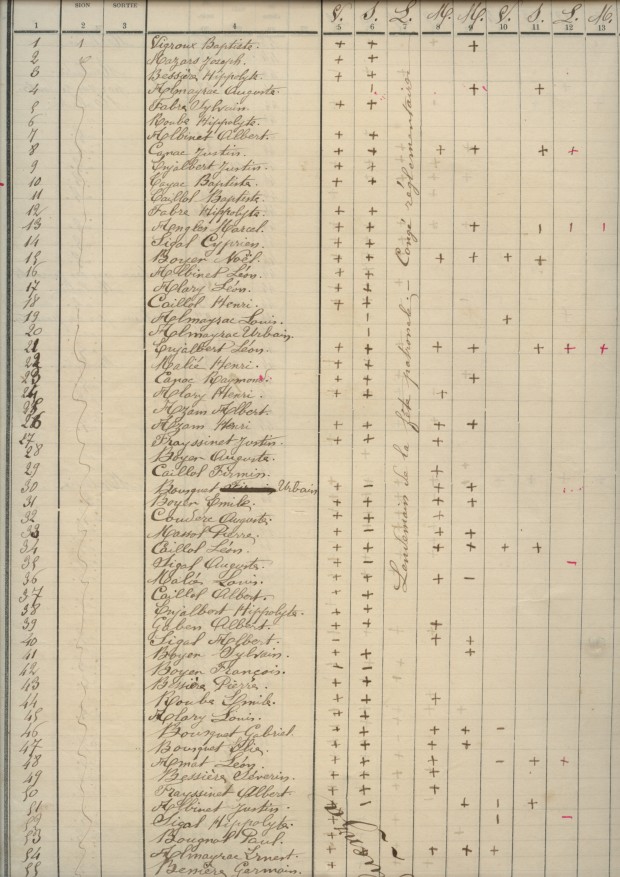 SION SORTIE V. S. L. M. M. V. S. L. M.
1 2 3 4 5 6 7 8 9 10 11 12 13
1 1 Vigroux Baptiste. + + +
2 Mazars Joseph. + +
3 Bessière Hippolyte. + +
4 Almayrac Auguste - + +
5 Fabre Sylvain. + +
6 Roube Hippolyte.
7 Albinet Albert. + +
8 Canac Justin. + + + + + +
9 Enjalbert Justin. + +
10 Cayac Baptiste. + +
11 Caillol Baptiste.
12 Fabre Hippolyte. + +
13 Angles Marcel. + + + | | |
14 Sigal Cyprien. + +
15 Boyer Noël. + + + + + +
16 Albinet Léon. + -
17 Alary Léon. + +
18 Caillol Henri. + +
19 Almayrac Louis. - +
20 Almayrac Urbain -
21 Enjalbert Léon. + + + + + + +
22 Malié Henri. + +
23 Canac Raymond. + + +
24 Alary Henri. + + +
25 Azam Albert.
26 Azam Henri + + + +
27 Frayssinet Justin. + + +
28 Boyer Auguste.
29 Caillol Firmin. +
30 Bousquet Urbain + - + + -
31 Boyer Emile. + + + +
32 Coudere Auguste. + +
33 Massol Pierre. + - + +
34 Caillol Léon. + + + + + +
35 Sigal Auguste. + - -
36 Malié Louis. + - + -
37 Caillol Albert. + +
38 Enjalbert Hippolyte. + +
39 Gaben Albert. + + +
40 Sigal Albert. - + + +
41 Boyer Sylvain. + + +
42 Boyer François. + -
43 Bessière Pierre. + +
44 Roube Emile. + + +
45 Alary Louis. + +
46 Bousquet Gabriel. + + + + -
47 Bousquet Elie. + + + +
48 Amat Léon. + + + - + +
49 Bessière Séverin. + + +
50 Frayssinet Albert + + +
51 Albinet Justin. + - + - +
52 Sigal Hippolyte. + - -
53 Bouquet Paul. +
54 Almayrac Ernest. + + + +
55 Bessière Germain.
Lendemain de la fête patronale. – Congé réglementaire